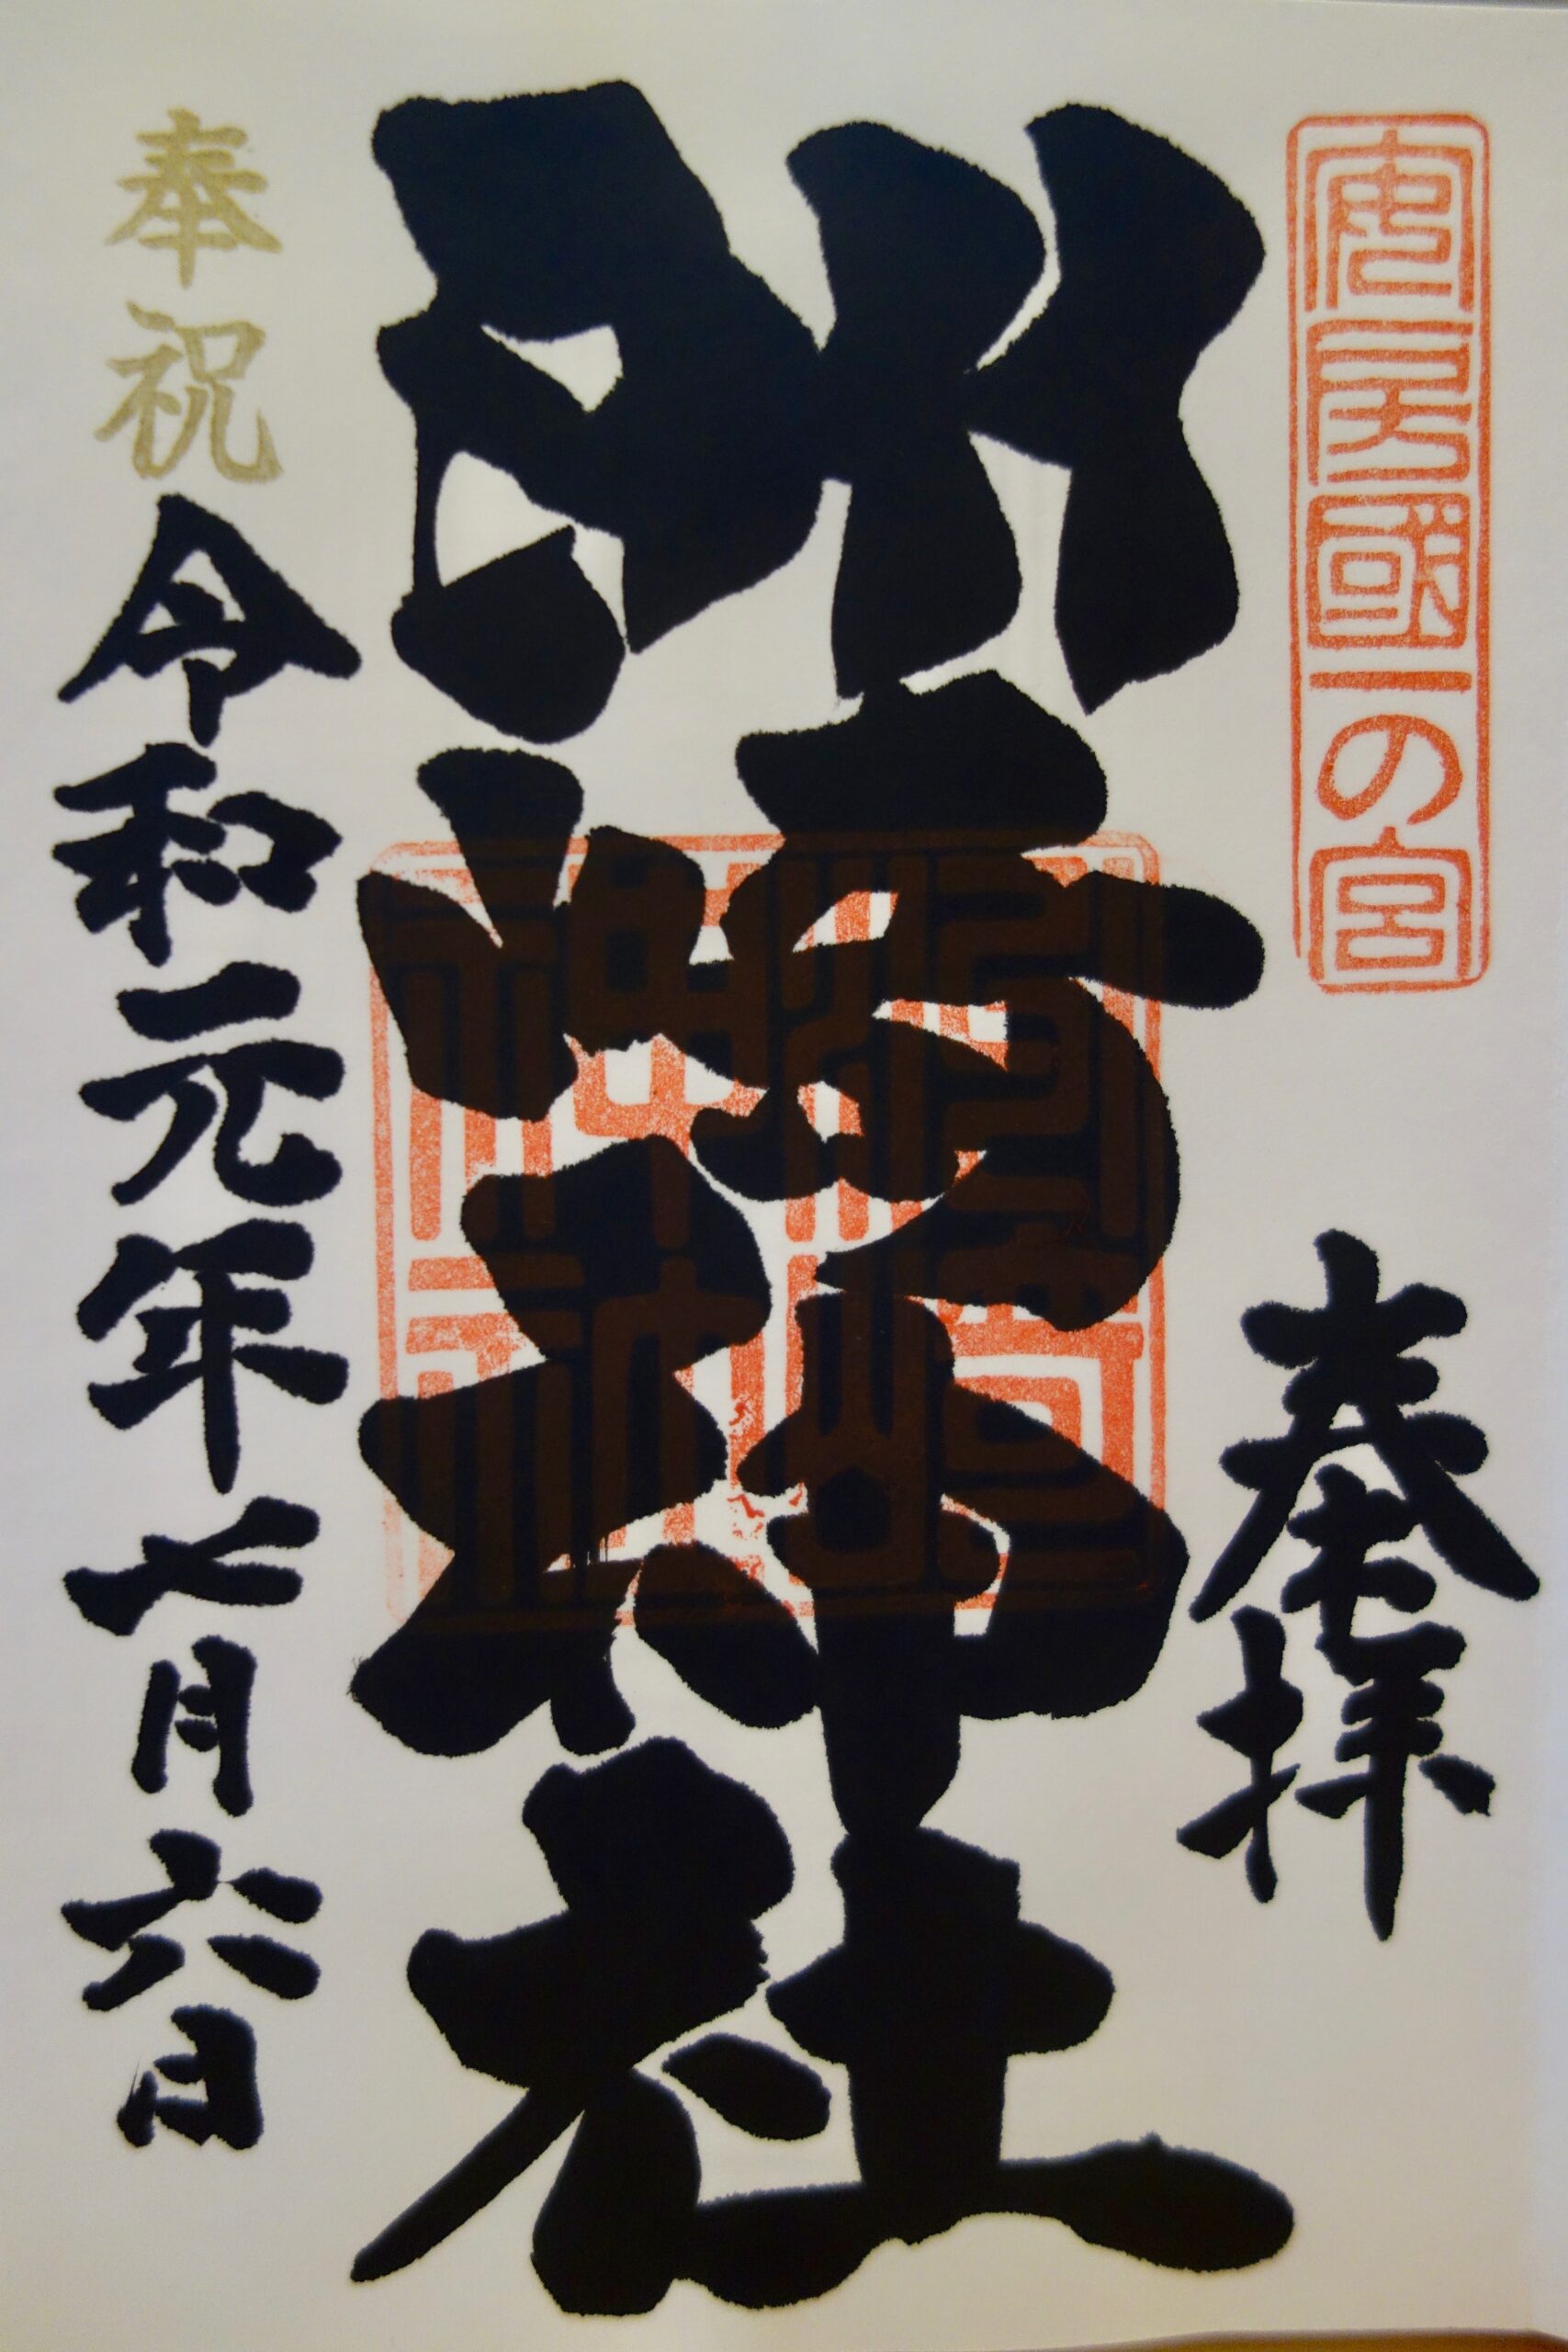 安房國一の宮
奉拝
洲崎神社
奉祝
令和元年七月六日